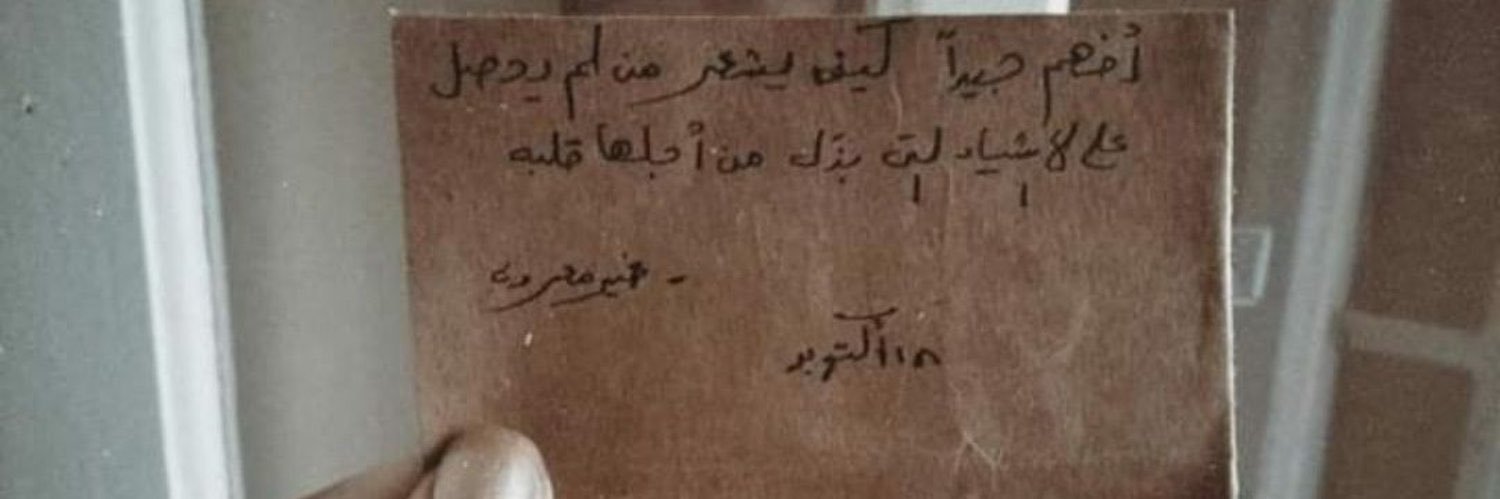 أفهم جيداً كيف يشعر من لم يحصل
على لأشياء لتي بذل من أجلها قلبه
- غير معروف
١٨ أكتوبر